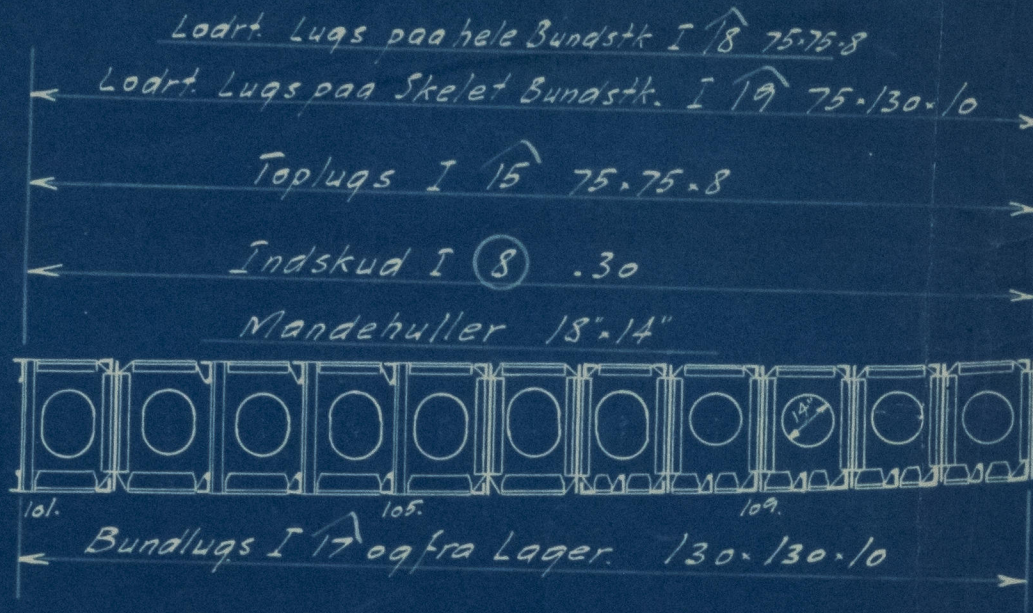 Lodrt. Lugs paa hele Bundstk I 18 75×75×8
Lodrt. Lugs paa Skelet Bundstk. I 19 75×130×10
Toplugs I 15 75×75×8
Indskud I 8 .30
Mandehuller 18"×14"
14"
101. 105. 109.
Bundlugs I 17 og fra Lager. 130×130×10